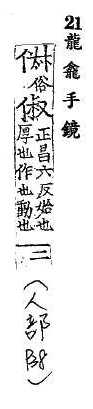 21 龍龕手鏡
俗 俶 正昌六反始也
厚也作也動也 二
(人部38)